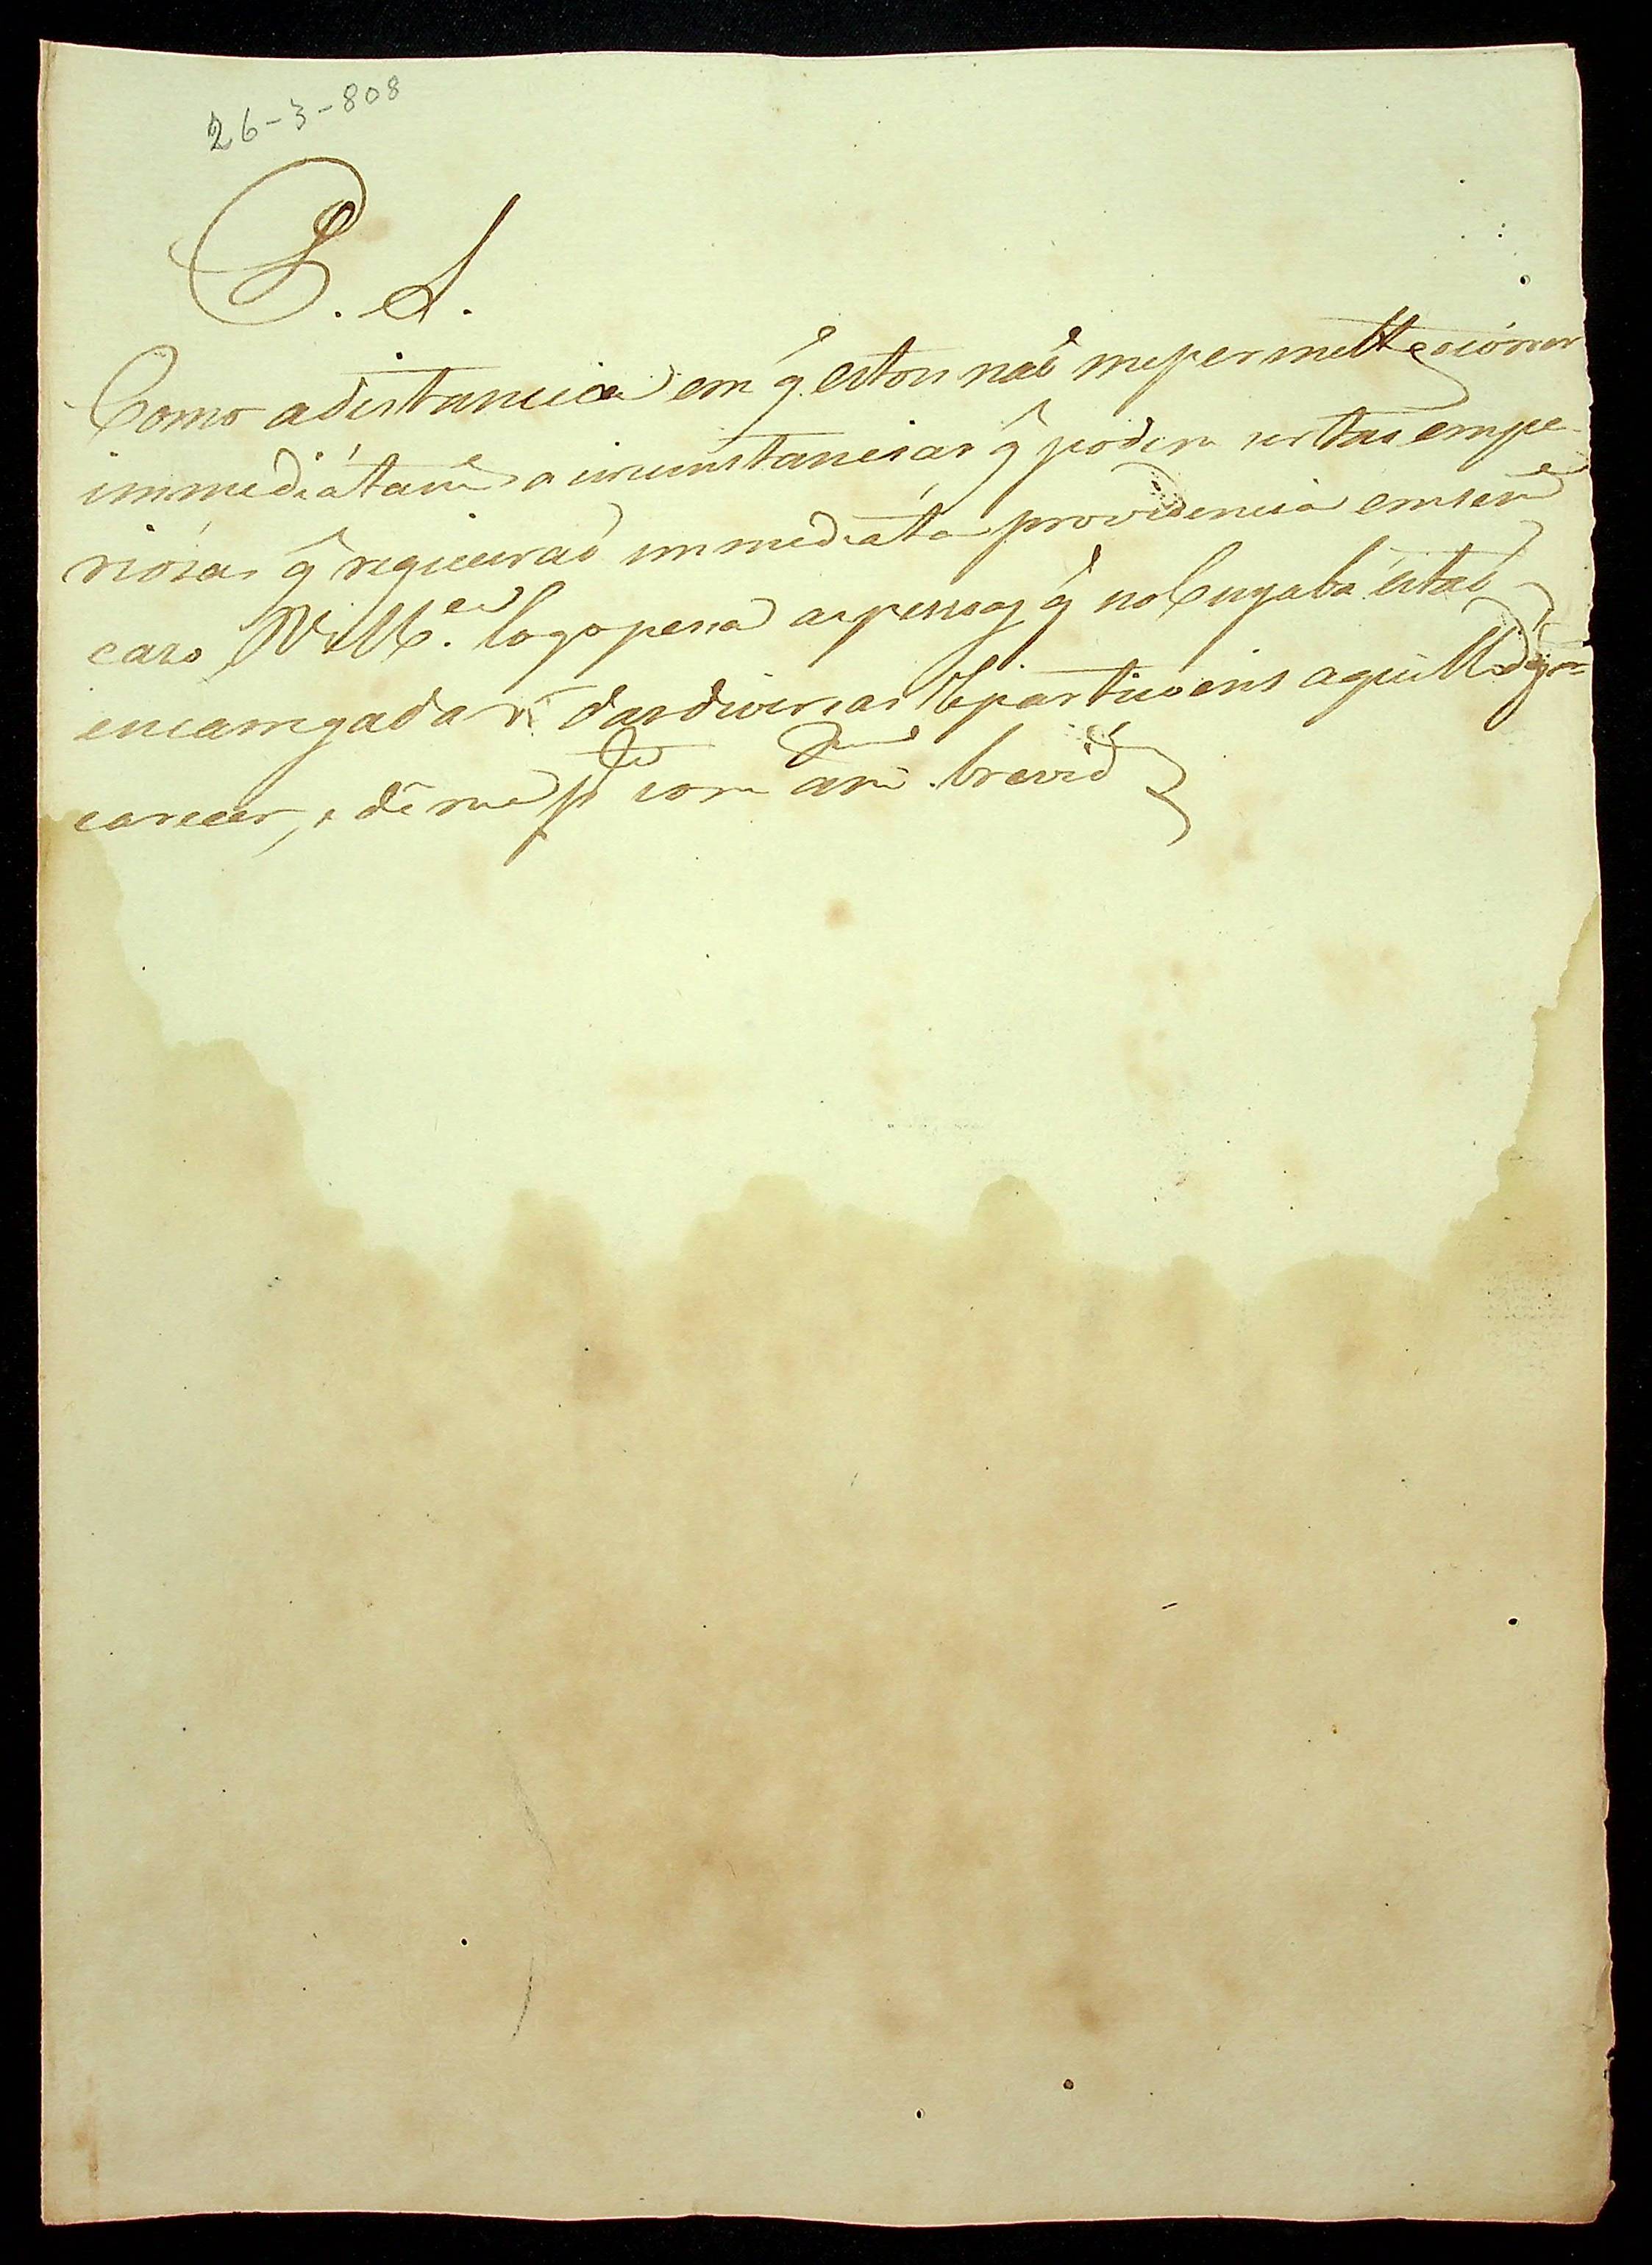 26-3-808
P. S.
Como a distancia em q̃ estou naõ me permitte ocorrer
immediátam.e a circunstancias q̃ podem ser tao impe-
riósas q̃ requeiraõ immediáta providencia em sem.e
cazo, V.M.ce logo pessa as pessoas q̃ no Cuyabá estaõ
encarregadas das diversas Reparticoens aquillo de q̃
carecer, e dê me p.te com a m.r brevid.e